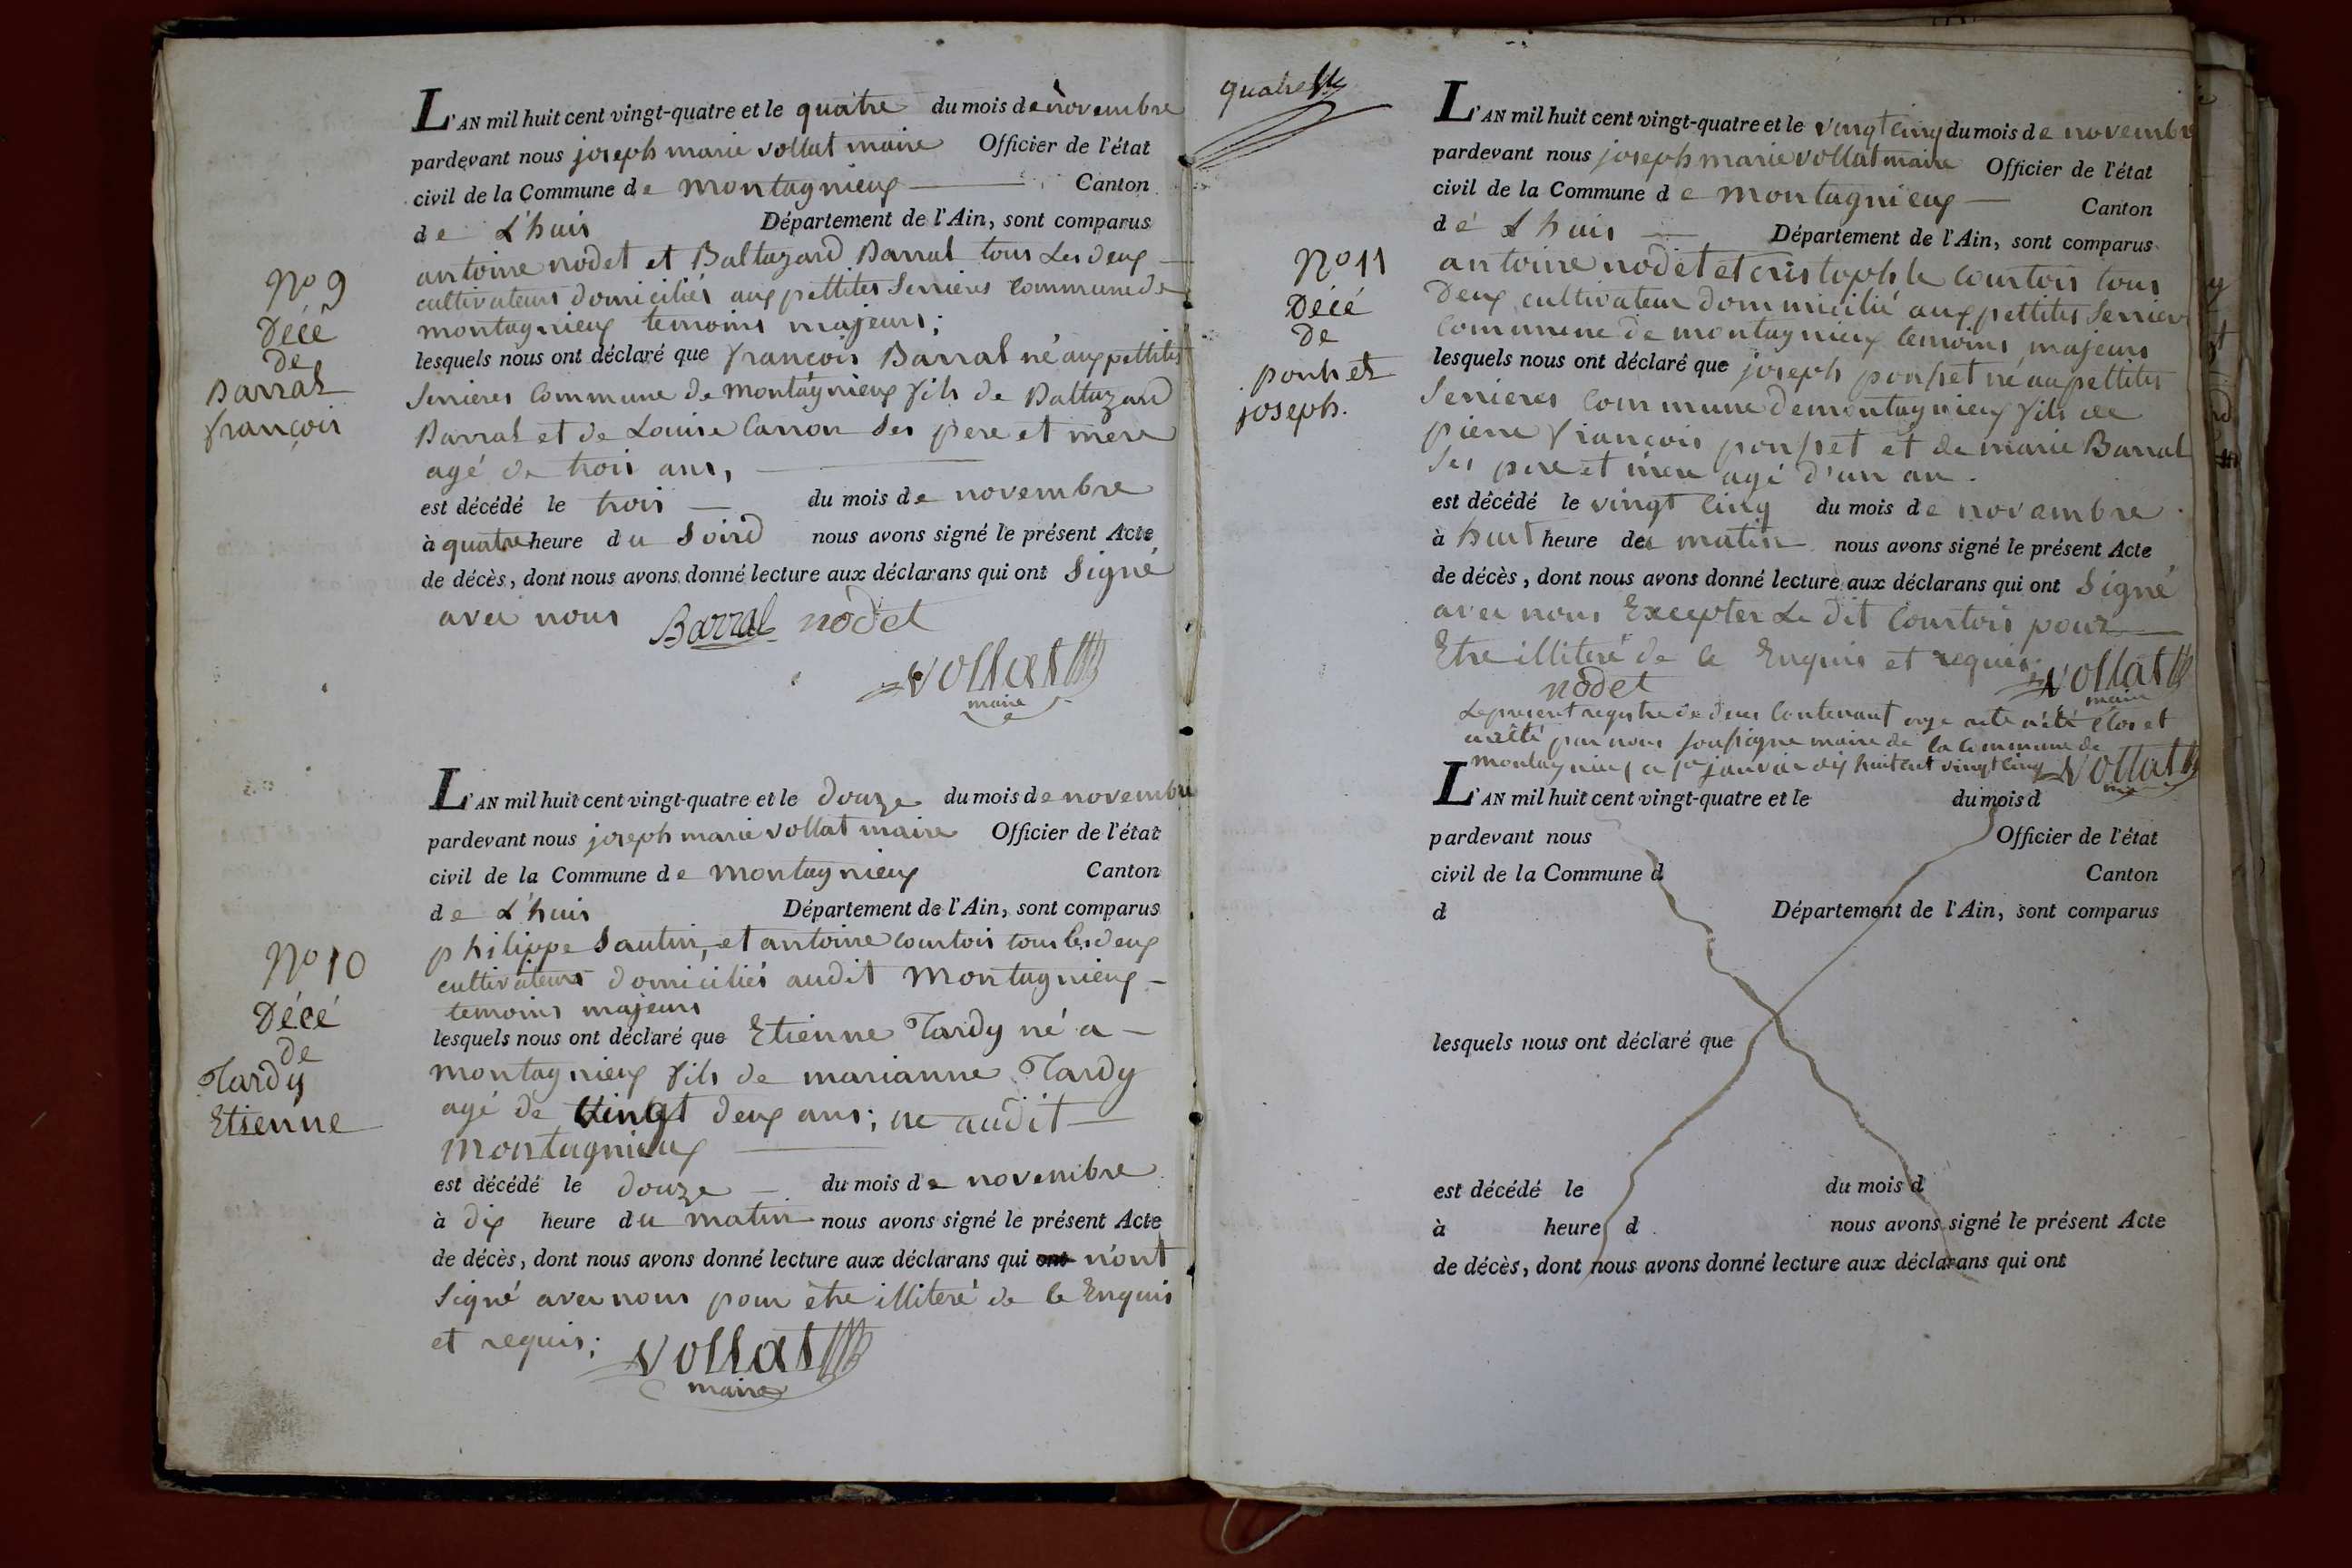 L'AN mil huit cent vingt-quatre et le quatre du mois de novembre
pardevant nous joseph marie vollat maire Officier de l'état
civil de la Commune de montagnieux Canton
de L'huis Département de l'Ain, sont comparus
antoine nodet et Baltazard Barral tous Les deux
cultivateurs domiciliés aux pettites Serrieres Commune de
montagnieux temoins majeurs;
lesquels nous ont déclaré que françois Barral né aux pettites
Serrieres Commune de montagnieux fils de Baltazard
Barral et de Louise Carron Ses pere et mere
agé de trois ans,
est décédé le trois du mois de novembre
à quatre heure du Soird nous avons signé le présent Acte
de décès, dont nous avons donné lecture aux déclarans qui ont Signé
avec nous Barral nodet
vollat
maire
No 9
Décé
de
Barral
françois
L'AN mil huit cent vingt-quatre et le douze du mois de novembre
pardevant nous joseph marie vollat maire Officier de l'état
civil de la Commune de montagnieux Canton
de L'huis Département de l'Ain, sont comparus
philippe Sautin, et antoine courtois tous les deux
cultivateurs domiciliés audit Montagnieux
temoins majeurs
lesquels nous ont déclaré que Etienne Tardy né a
montagnieux fils de marianne Tardy
agé de vingt deux ans; ne audit
montagnieux
est décédé le douze du mois de novembre
à dix heure du matin nous avons signé le présent Acte
de décès, dont nous avons donné lecture aux déclarans qui ont n'ont
Signé avec nous pour être illiteré de ce Enquis
et requis; vollat
maire
No 10
Décé
de
Tardy
Etienne
quatre
L'AN mil huit cent vingt-quatre et le vingt cinq du mois de novembre
pardevant nous joseph marie vollat maire Officier de l'état
civil de la Commune de montagnieux Canton
dé L huis Département de l'Ain, sont comparus
antoine nodet et cristophle courtois tous
Deux cultivateur dommicilié aux pettites Serrier
Commune de montagnieux temoins majeurs
lesquels nous ont déclaré que joseph ponset né au pettites
Serrieres Commune de montagnieux fils de
pierre françois ponset et de marie Barral
Ses pere et mere agé d'un an.
est décédé le vingt cinq du mois de novembre
à huit heure du matin nous avons signé le présent Acte
de décès, dont nous avons donné lecture aux déclarans qui ont Signé
avec nous Excepter Le dit Courtois pour
Etre illiteré de ce Enquis et requis. vollat
nodet maire
Le present registre de deces Contenant onze acte a été clos et
arrêté par nous soussigne maire de la Commune de
montagnieux ce 1er janvier dix huit cent vingt cinq vollat
No 11
Décé
de
ponset
joseph.
L'AN mil huit cent vingt-quatre et le du mois d
pardevant nous Officier de l'état
civil de la Commune d Canton
d Département de l'Ain, sont comparus
lesquels nous ont déclaré que
est décédé le du mois d
à heure d nous avons signé le présent Acte
de décès, dont nous avons donné lecture aux déclarans qui ont